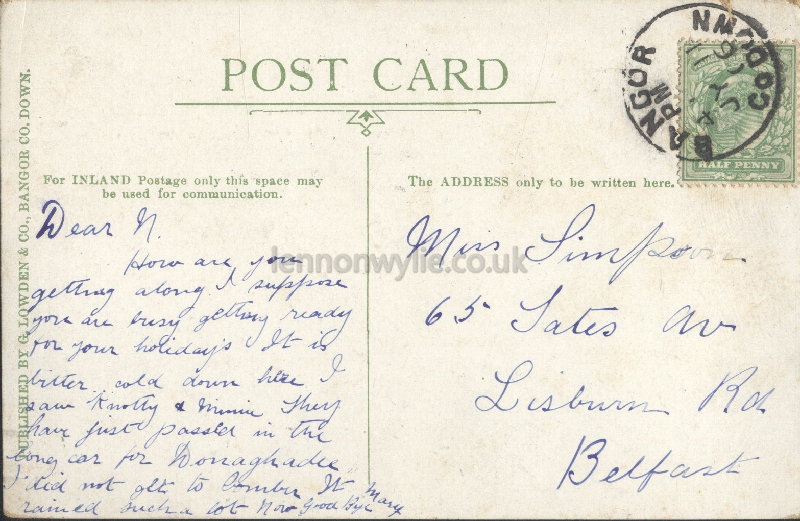 POST CARD
BANGOR
CO DOWN
PM
HALF PENNY
PUBLISHED BY G. LOWDEN & CO., BANGOR CO. DOWN.
For INLAND Postage only this space may
be used for communication.
The ADDRESS only to be written here.
Dear N.
How are you
getting along I suppose
you are busy getting ready
for your holidays It is
bitter cold down here I
saw Knotty & Minnie They
have just passed in the
long car for Donaghadee
I did not get to Comber It
rained such a lot Now Good Bye
Mary
Miss Simpson
65 Sates Av
Lisburn Rd
Belfast
lennonwylie.co.uk